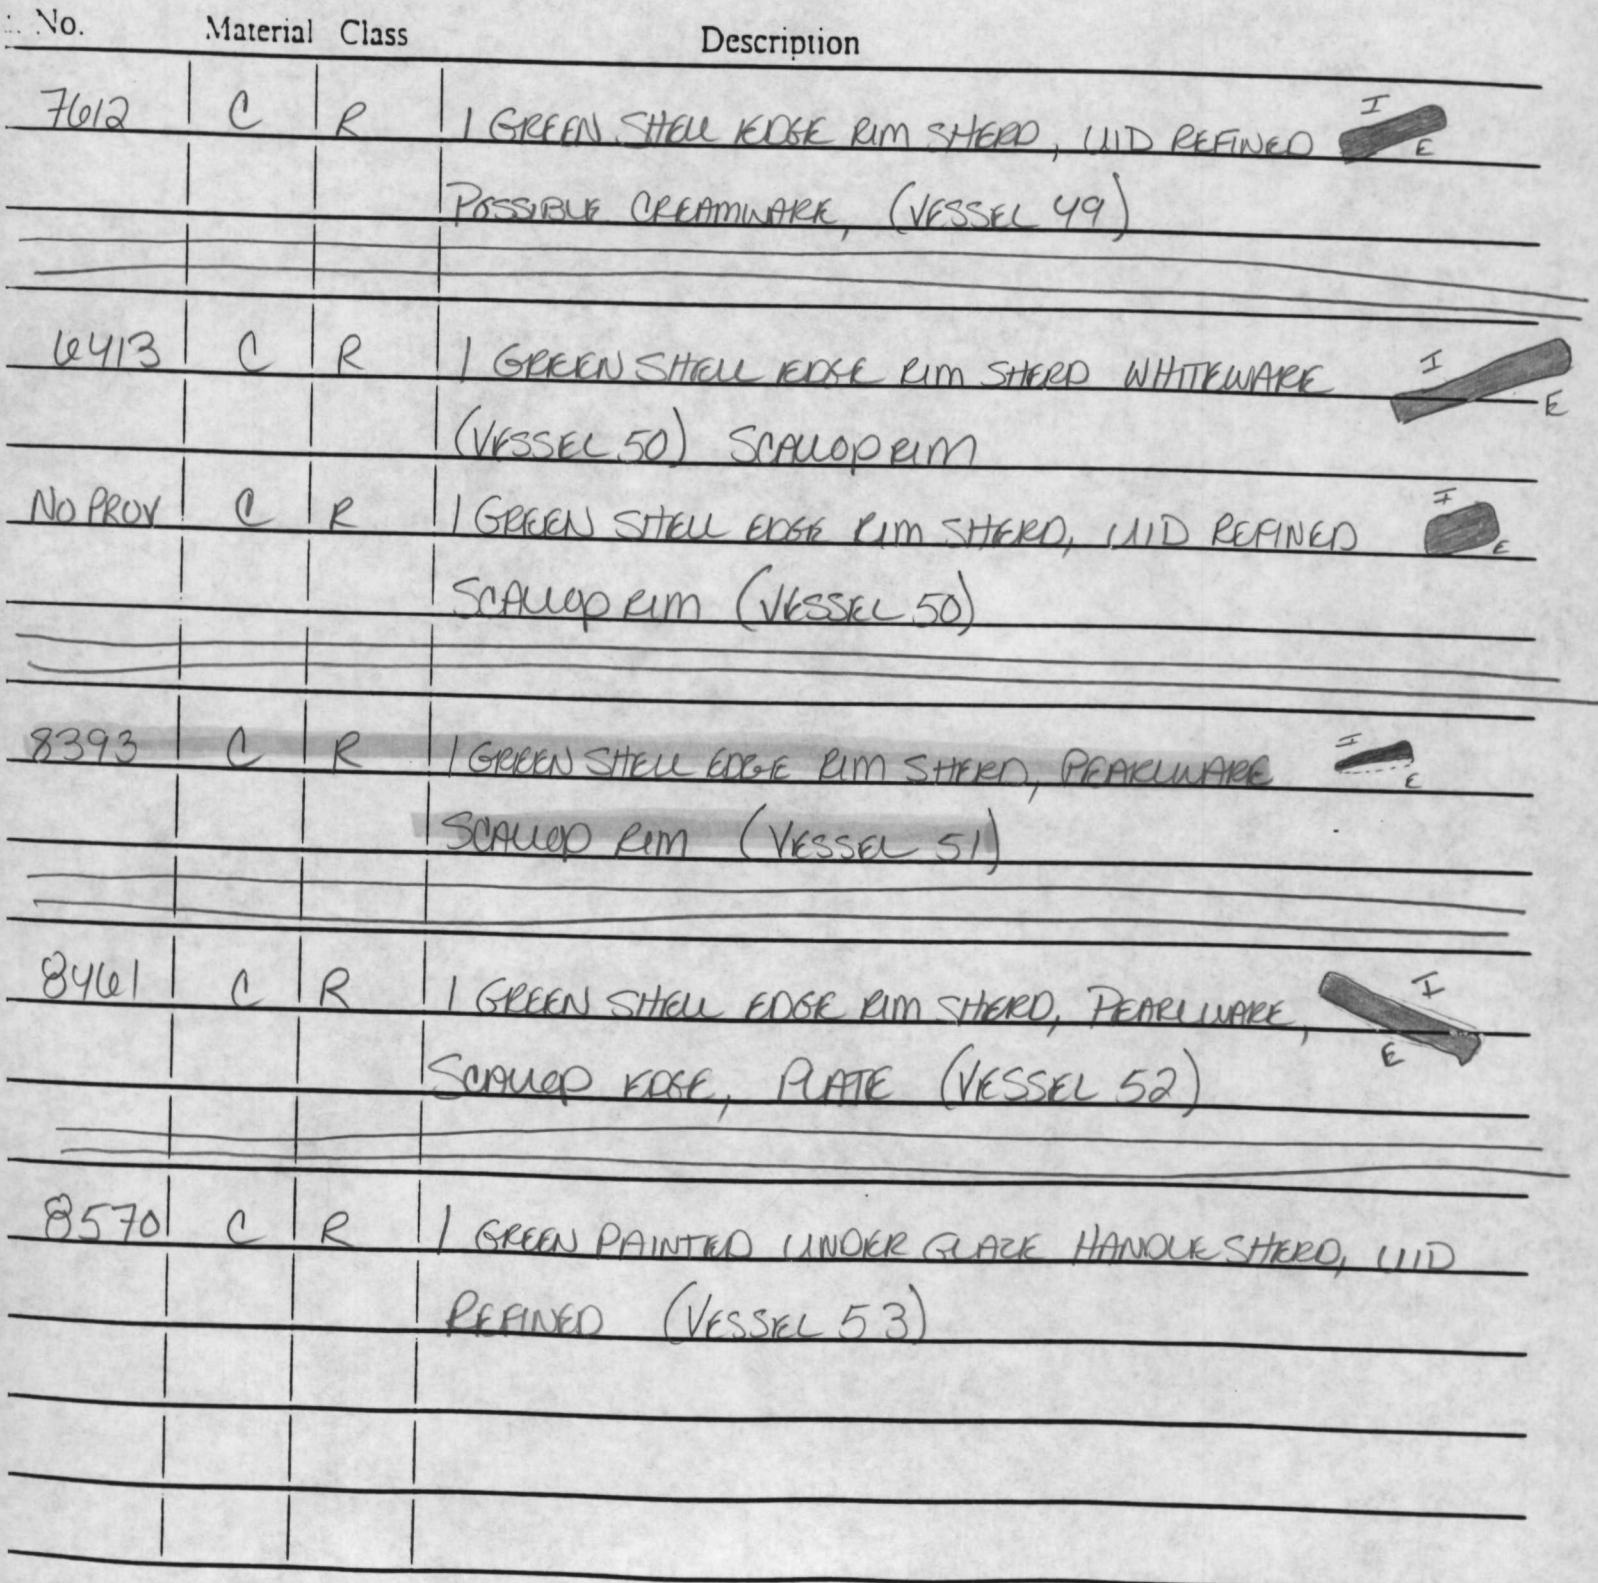 No. Material Class Description
7612 C R 1 GREEN SHELL EDGE RIM SHERD, UID REFINED I E
POSSIBLE CREAMWARE, (VESSEL 49)
6413 C R 1 GREEN SHELL EDGE RIM SHERD WHITEWARE I E
(VESSEL 50) SCALLOP RIM
NO PROV C R 1 GREEN SHELL EDGE RIM SHERD, UID REFINED I E
SCALLOP RIM (VESSEL 50)
8393 C R 1 GREEN SHELL EDGE RIM SHERD, PEARLWARE I E
SCALLOP RIM (VESSEL 51)
8461 C R 1 GREEN SHELL EDGE RIM SHERD, PEARLWARE, I E
SCALLOP EDGE, PLATE (VESSEL 52)
8570 C R 1 GREEN PAINTED UNDER GLAZE HANDLE SHERD, UID
REFINED (VESSEL 53)